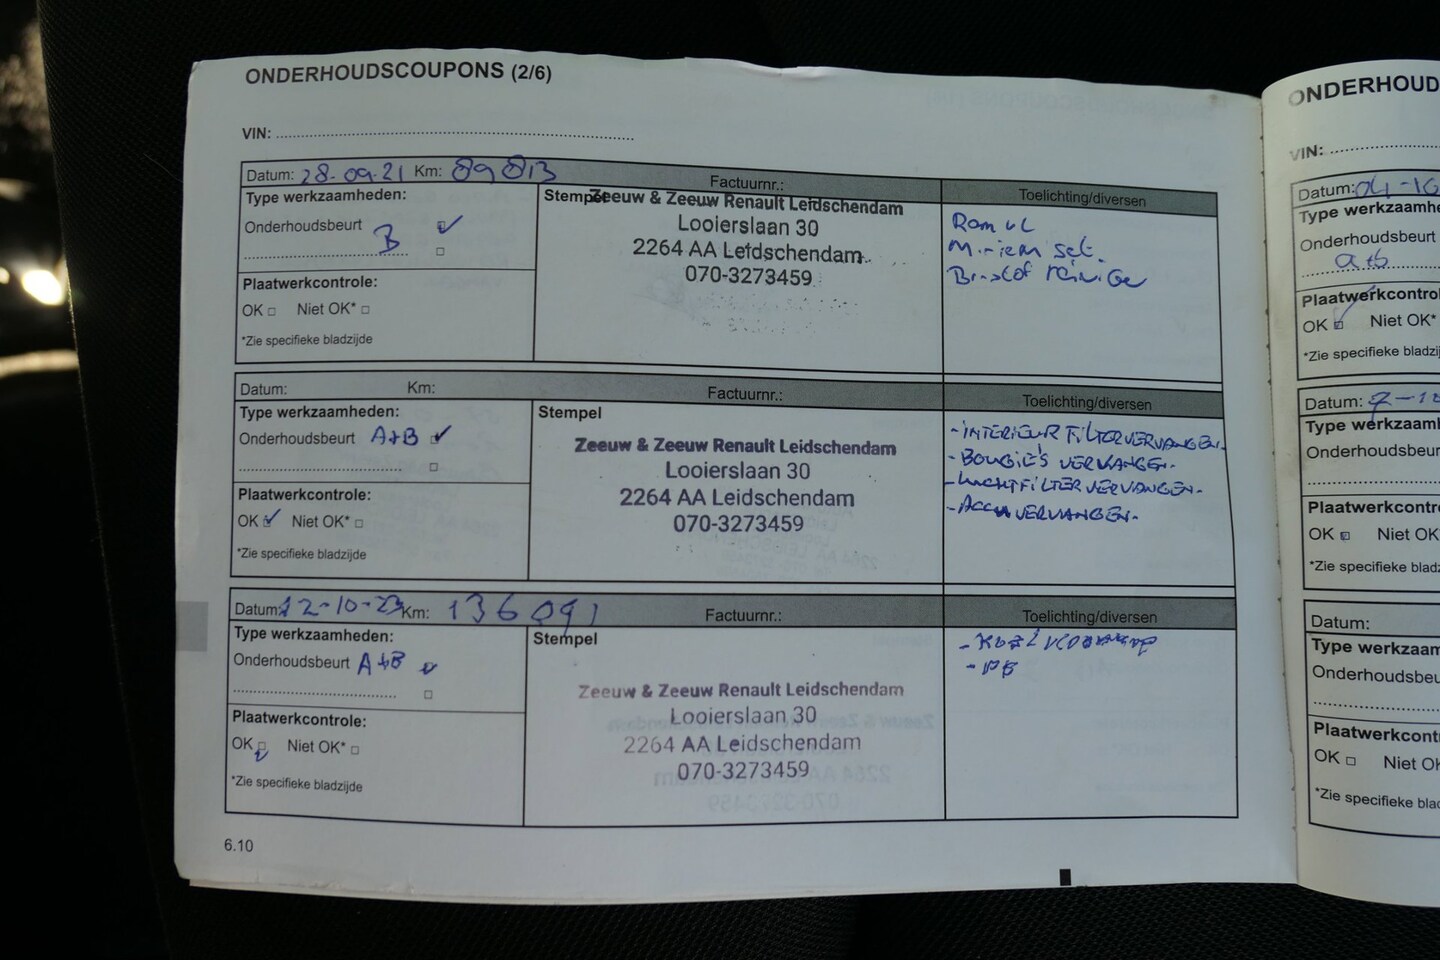 ONDERHOUDSCOUPONS (2/6)
VIN:
Datum: 28.09.21 Km: 89 813
Factuurnr.:
Toelichting/diversen
Type werkzaamheden:
Onderhoudsbeurt
B
Plaatwerkcontrole:
OK Niet OK*
*Zie specifieke bladzijde
Stempel
Zeeuw & Zeeuw Renault Leidschendam
Looierslaan 30
2264 AA Leidschendam
070-3273459
set.
Datum: Km:
Factuurnr.:
Toelichting/diversen
Type werkzaamheden:
Onderhoudsbeurt A+B
Plaatwerkcontrole:
OK Niet OK*
*Zie specifieke bladzijde
Stempel
Zeeuw & Zeeuw Renault Leidschendam
Looierslaan 30
2264 AA Leidschendam
070-3273459
- INTERIEUR FILTER VERVANGEN.
- BOUGIE'S VERVANGEN.
- LUCHTFILTER VERVANGEN.
- ACCU VERVANGEN.
Datum: 12-10-23 Km: 136 091
Factuurnr.:
Toelichting/diversen
Type werkzaamheden:
Onderhoudsbeurt A+B
Plaatwerkcontrole:
OK Niet OK*
*Zie specifieke bladzijde
Stempel
Zeeuw & Zeeuw Renault Leidschendam
Looierslaan 30
2264 AA Leidschendam
070-3273459
6.10
ONDERHOUD
VIN:
Datum: 04-10
Type werkzaamhe
Onderhoudsbeurt
a+b
Plaatwerkcontrol
OK Niet OK*
*Zie specifieke bladzij
Datum: 7-12
Type werkzaamh
Onderhoudsbeur
Plaatwerkcontro
OK Niet OK
*Zie specifieke bladz
Datum:
Type werkzaam
Onderhoudsbeu
Plaatwerkcont
OK Niet O
*Zie specifieke blad